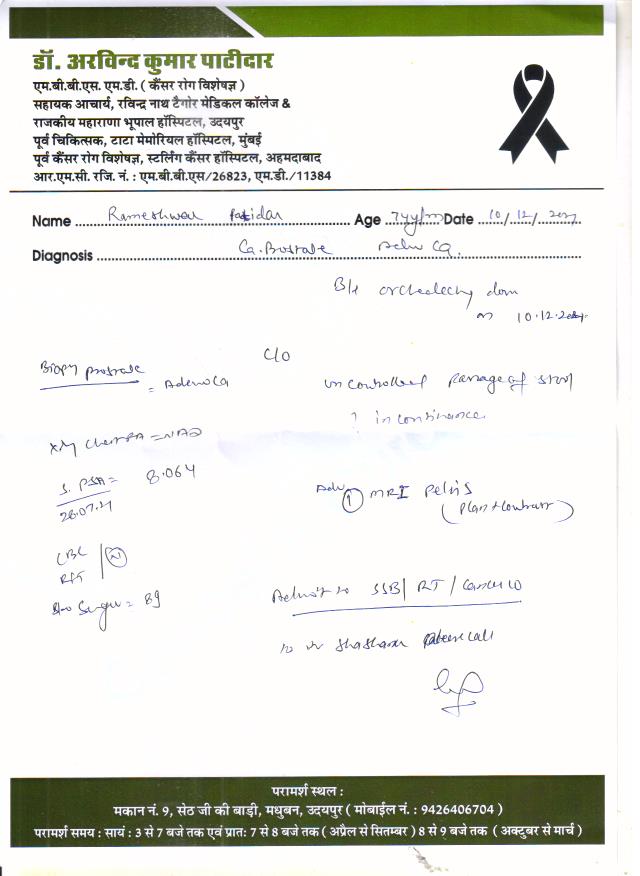 डॉ. अरविन्द कुमार पाटीदार
एम.बी.बी.एस. एम.डी. ( कैंसर रोग विशेषज्ञ )
सहायक आचार्य, रविन्द्र नाथ टैगोर मेडिकल कॉलेज &
राजकीय महाराणा भूपाल हॉस्पिटल, उदयपुर
पूर्व चिकित्सक, टाटा मेमोरियल हॉस्पिटल, मुंबई
पूर्व कैंसर रोग विशेषज्ञ, स्टर्लिंग कैंसर हॉस्पिटल, अहमदाबाद
आर.एम.सी. रजि. नं. : एम.बी.बी.एस/26823, एम.डी./11384
Name Rameshwar Patidar Age Date 10/12/
Diagnosis Ca. Prostate Adeno Ca.
B/L orchidectomy done
on 10.12.
C/O
Biopsy prostate
= Adeno Ca
uncontrolled passage of stool
? incontinence
X Ray Chest PA = NAD
S. PSA = 8.064
28.07.21
Adv ① MRI Pelvis
(Plain + Contrast)
CBC
RFT
Sugar = 89
Admit to SSB / RT / Cancer
परामर्श स्थल :
मकान नं. 9, सेठ जी की बाड़ी, मधुबन, उदयपुर ( मोबाईल नं. : 9426406704 )
परामर्श समय : सायं : 3 से 7 बजे तक एवं प्रातः 7 से 8 बजे तक ( अप्रैल से सितम्बर ) 8 से 9 बजे तक ( अक्टुबर से मार्च )